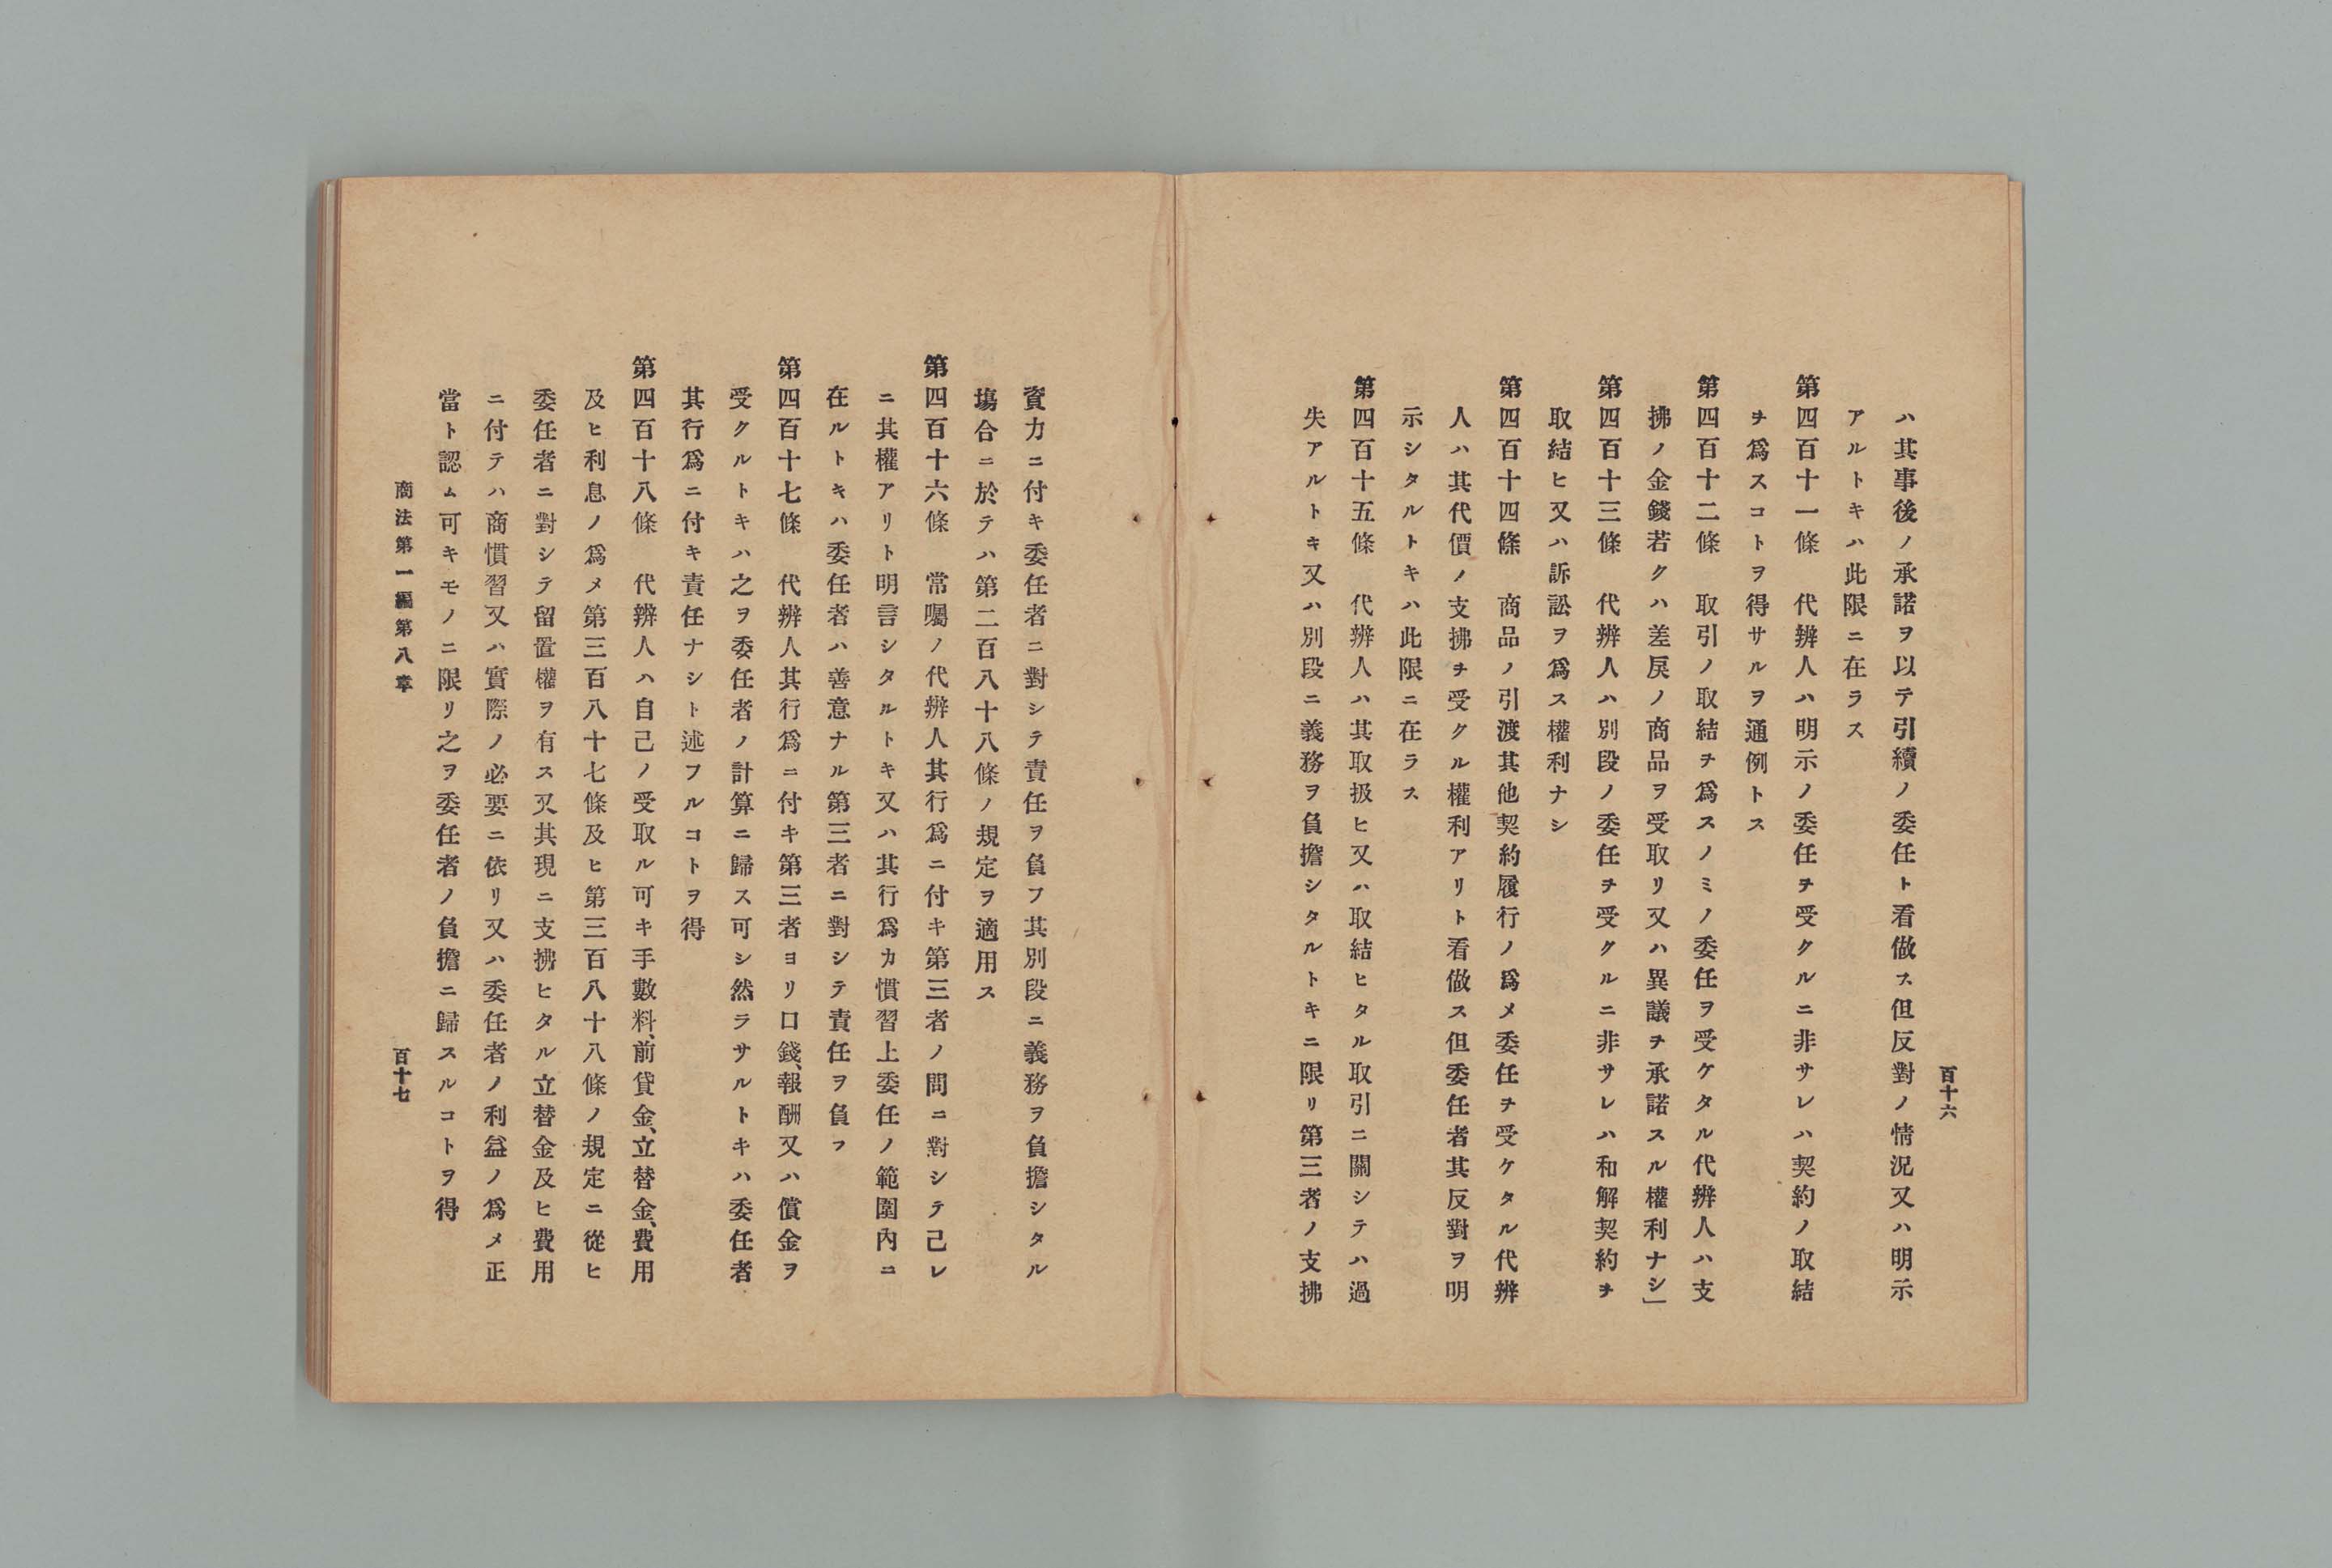 百十六
ハ其事後ノ承諾ヲ以テ引續ノ委任ト看做ス但反對ノ情況又ハ明示
アルトキハ此限ニ在ラス
第四百十一條　代辨人ハ明示ノ委任ヲ受クルニ非サレハ契約ノ取結
ヲ爲スコトヲ得サルヲ通例トス
第四百十二條　取引ノ取結ヲ爲スノミノ委任ヲ受ケタル代辨人ハ支
拂ノ金錢若クハ差戻ノ商品ヲ受取リ又ハ異議ヲ承諾スル權利ナシ」
第四百十三條　代辨人ハ別段ノ委任ヲ受クルニ非サレハ和解契約ヲ
取結ヒ又ハ訴訟ヲ爲ス權利ナシ
第四百十四條　商品ノ引渡其他契約履行ノ爲メ委任ヲ受ケタル代辨
人ハ其代價ノ支拂ヲ受クル權利アリト看做ス但委任者其反對ヲ明
示シタルトキハ此限ニ在ラス
第四百十五條　代辨人ハ其取扱ヒ又ハ取結ヒタル取引ニ關シテハ過
失アルトキ又ハ別段ニ義務ヲ負擔シタルトキニ限リ第三者ノ支拂
資力ニ付キ委任者ニ對シテ責任ヲ負フ其別段ニ義務ヲ負擔シタル
塲合ニ於テハ第二百八十八條ノ規定ヲ適用ス
第四百十六條　常囑ノ代辨人其行爲ニ付キ第三者ノ問ニ對シテ己レ
ニ其權アリト明言シタルトキ又ハ其行爲カ慣習上委任ノ範圍內ニ
在ルトキハ委任者ハ善意ナル第三者ニ對シテ責任ヲ負フ
第四百十七條　代辨人其行爲ニ付キ第三者ヨリ口錢、報酬又ハ償金ヲ
受クルトキハ之ヲ委任者ノ計算ニ歸ス可シ然ラサルトキハ委任者
其行爲ニ付キ責任ナシト述フルコトヲ得
第四百十八條　代辨人ハ自己ノ受取ル可キ手數料、前貸金、立替金、費用
及ヒ利息ノ爲メ第三百八十七條及ヒ第三百八十八條ノ規定ニ從ヒ
委任者ニ對シテ留置權ヲ有ス又其現ニ支拂ヒタル立替金及ヒ費用
ニ付テハ商慣習又ハ實際ノ必要ニ依リ又ハ委任者ノ利益ノ爲メ正
當ト認ム可キモノニ限リ之ヲ委任者ノ負擔ニ歸スルコトヲ得
商法第一編第八章
百十七